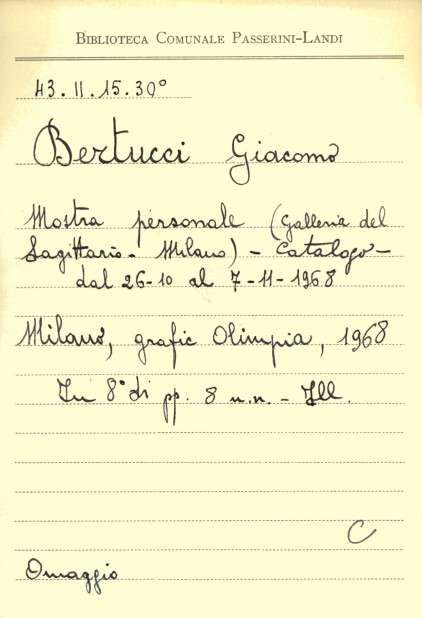 BIBLIOTECA COMUNALE PASSERINI-LANDI
43.II.15.30°
Bertucci Giacomo
Mostra personale (Galleria del
Sagittario - Milano) - Catalogo -
dal 26-10 al 7-11-1968
Milano, grafic Olimpia, 1968
In 8° di pp. 8 n.n. - Ill.
C
Omaggio